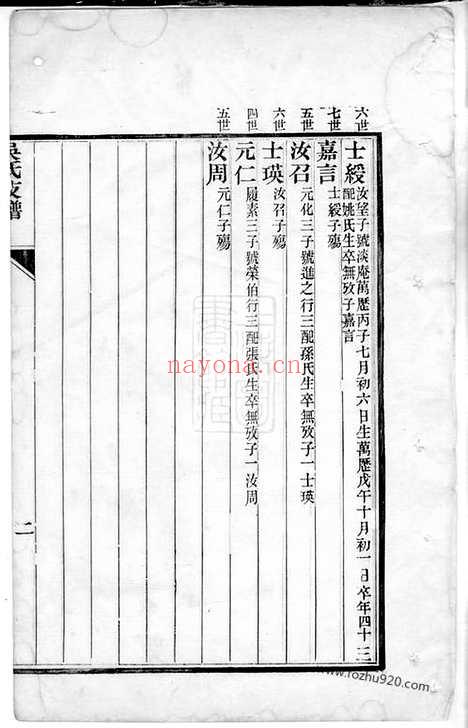 六世
士綬 汝望子號淡庵萬歷丙子七月初六日生萬歷戊午十月初一日卒年四十三
配姚氏生卒無攷子嘉言
七世
嘉言 士綬子殤
五世
汝召 元化三子號進之行三配孫氏生卒無攷子一士瑛
六世
士瑛 汝召子殤
四世
元仁 履素三子號榮伯行三配張氏生卒無攷子一汝周
五世
汝周 元仁子殤
吳氏支譜
二
nayona.cn
www.rozhu920.com